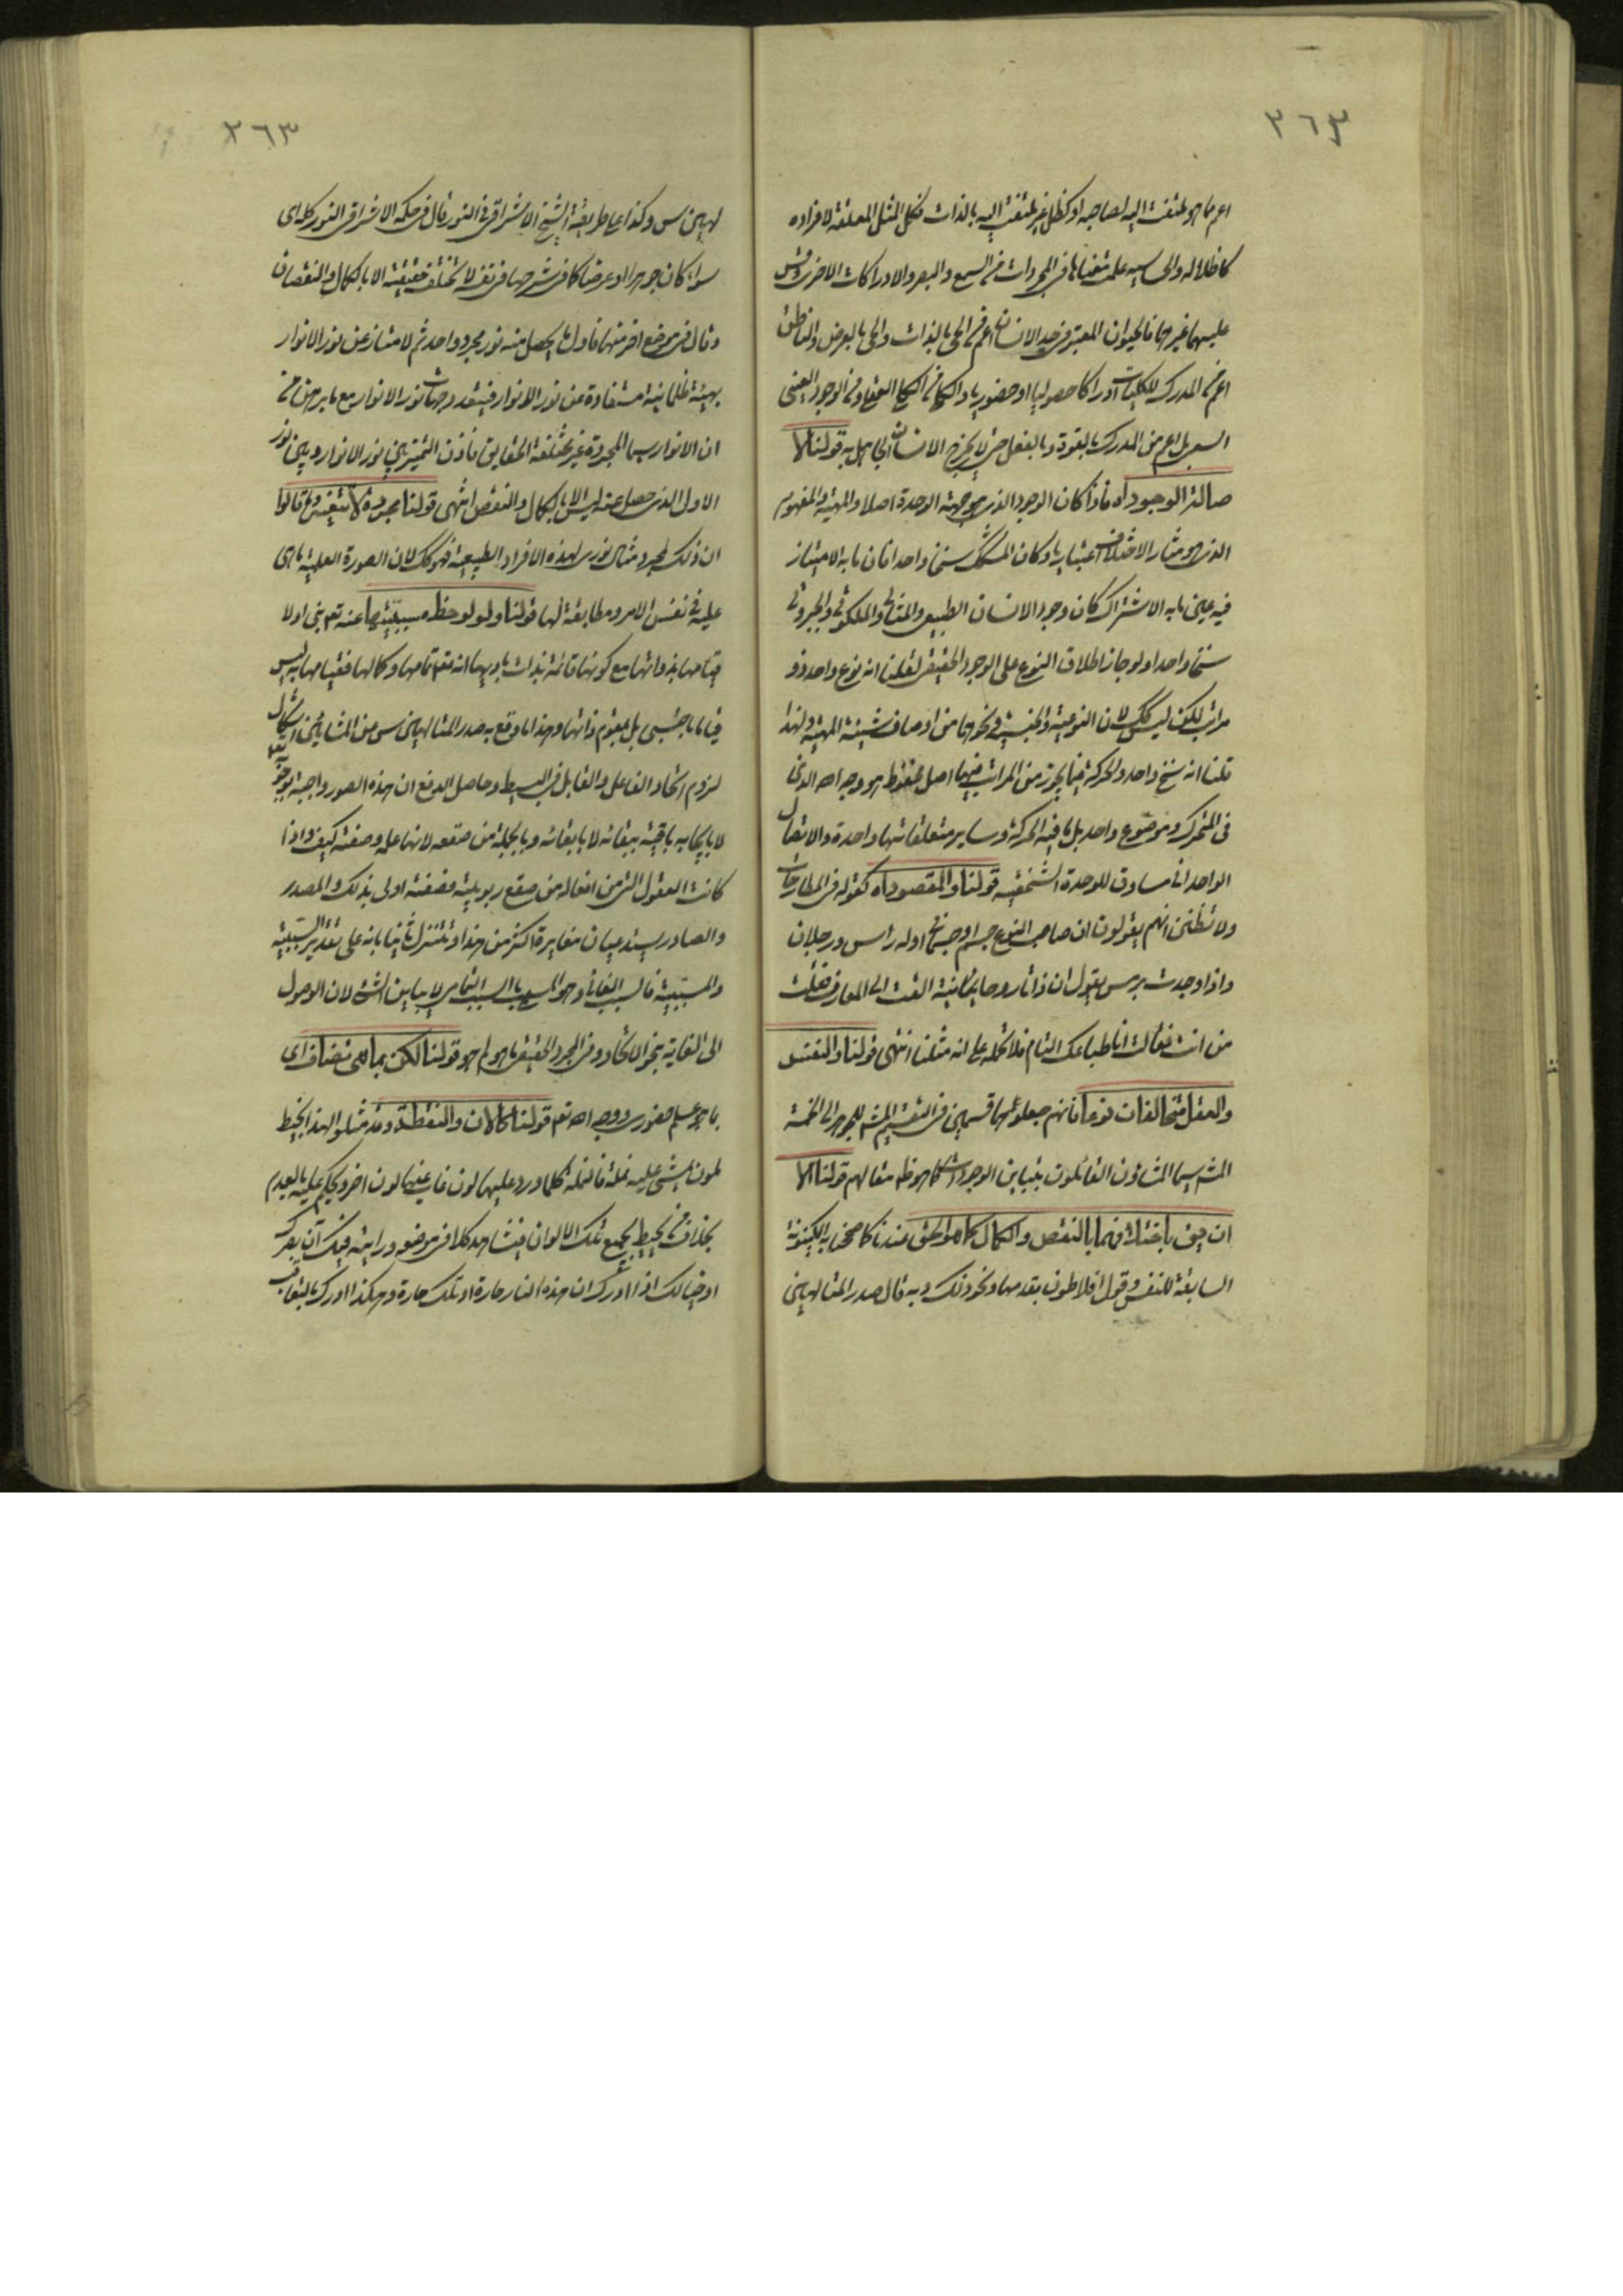 ٣٦٣
اعم مما هو ملتفت اليه لصاحبه او كظل غير ملتفت اليه بالذات فكل المثل المعلقة لافراده
كاظلاله والحاسبه علمت معناها في المجردات من السمع والبصر والادراكات الاخرى وقس
عليهما غيرهما فالحيوان المعتبر في حد الانسان اعم من الحي بالذات والحي بالعرض والناطق
اعم من المدرك للكليات ادراكا حصوليا او حضوريا والكلي من الكلي العقلي ومن الوجود العيني
السعي بل اعم من المدرك بالقوة وبالفعل حتى لا يخرج الانسان الجاهل به قولنا لا
صالة الوجود اه فاذا كان الوجود الذي هو جهة الوحدة اصلا والمهية والمفهوم
الذي هو مثار الاختلاف اعتباريا وكان المشكك سنخا واحدا فان ما به الامتياز
فيه عين ما به الاشتراك كان وجود الانسان الطبيعي والمثالي والملكوتي والجبروتي
سنخا واحدا ولو جاز اطلاق النوع على الوجود الحقيقي لقلنا انه نوع واحد ذو
مراتب لكن ليس كك لان النوعية والجنسية ونحوهما من اوصاف شيئية المهية ولهذا
قلنا انه سنخ واحد والحركة فيما يجوز من المراتب فيها اصل محفوظ هو وجه الله الذي
في المتحرك وموضوع واحد بل ما فيه الحركة وساير متعلقاتها واحدة والاتصال
الواحداني مساوق للوحدة الشخصية قولنا والمقصود اه كقوله في المطارحات
ولا تظنن انهم يقولون ان صاحب النوع جسم او جسماني او له راس ورجلان
واذا وجدت هرمس يقول ان ذاتا روحانية القت الى المعارف فقلت
من انت فقالت انا طباعك التام فلا تحمله على انه مثلنا انتهى قولنا والنفس
والعقل متخالفان نوعا فانهم جعلوهما قسمين في التقسيم المشهور للجوهر الى الخمسة
المشهور سيما المشاؤن القائلون بتباين الوجودات كما هو ظاهر مقالهم قولنا الا
ان يق باختلافهما بالنقص والكمال كما هو الحق عندنا كما صححنا به الكينونة
السابقة للنفس وقول افلاطون بقدمها ونحو ذلك وبه قال صدر المتالهين
٢٦٣
لهين س وكذا على طريقة الشيخ الاشراقي في النور قال في حكمة الاشراق النور كله اي
سواء كان جوهرا او عرضا كما في شرحها في نفسه لا تختلف حقيقته الا بالكمال والنقصان
وقال في موضع اخر منها فاول ما يحصل منه نور مجرد واحد ثم لا متناز عن نور الانوار
بهيئة ظلمانية مستفادة عن نور الانوار فيتعدد جهات نور الانوار مع ما برهن من
ان الانوار سيما المجردة غير مختلفة الحقايق فاذن التميز بين نور الانوار وبين نور
الاول الذي حصل منه ليس الا بالكمال والنقص انتهى قولنا مجردة لا تتغير وما قالوا
ان ذلك لمجرد مثال نوري لهذه الافراد الطبيعية فهو كك لان الصورة العلمية ما هي
عليه في نفس الامر ومطابقة لها قولنا ولو لوحظ مسببيتها عنه تعم بني اولا
قيامها بذواتها مع كونها قائمة بذات باريها انه مقامها وكمالها فقيامها به ليس
قياما باجنبي بل بمقوم ذاتها وهذا ما وقع به صدر المتالهين س من المشائين اشكال
لزوم اتحاد الفاعل والقابل في البسيط وحاصل الدفع ان هذه الصور واجبة بوجوبه تعم
لا بايجابه باقية ببقائه لا بابقائه وبالجملة من صقعه لانها علمه وصفته كيف واذا
كانت العقول التي من افعاله من صقع ربوبيته فصفته اولى بذلك والمصدر
والصادر يستدعيان مغايرة اكثر من هذا وتتنزل ثانيا بانه على تقدير السببية
والمسببية فالسبب الغائي وهو المسمى بالسبب التمامي لا يباين الشيء لان الوصول
الى الغاية بنحو الاتحاد وفي المجرد الحقيقي ما هو لم هو قولنا لكن بما هي تضاف اي
بما هو علم حضوري ووجه الله تعم قولنا كالان والنقطة وقد مثلوا لهذا بخيط
لمون يمشي عليه نملة فالنملة كلما ورد عليها لون غاب عنها لون اخر ويحكم عليه بالعدم
بخلاف من يحيط بجميع تلك الالوان فيشاهد كلا في موضعه ورايته فيك ان بصرك
او خيالك اذا ادرك ان هذه النار حارة او تلك حارة وهكذا ادرك بالتعاقب